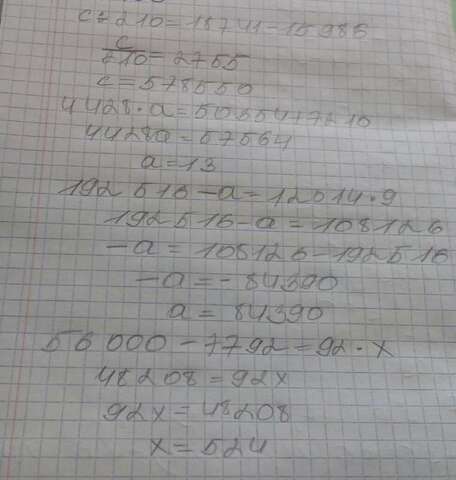 c÷210=18741-15986
c/210=2755
c=578550
4428·a=50354+7210
4428a=57564
a=13
192516-a=12014·9
192516-a=108126
-a=108126-192516
-a=-84390
a=84390
56000-7792=92·x
48208=92x
92x=48208
x=524